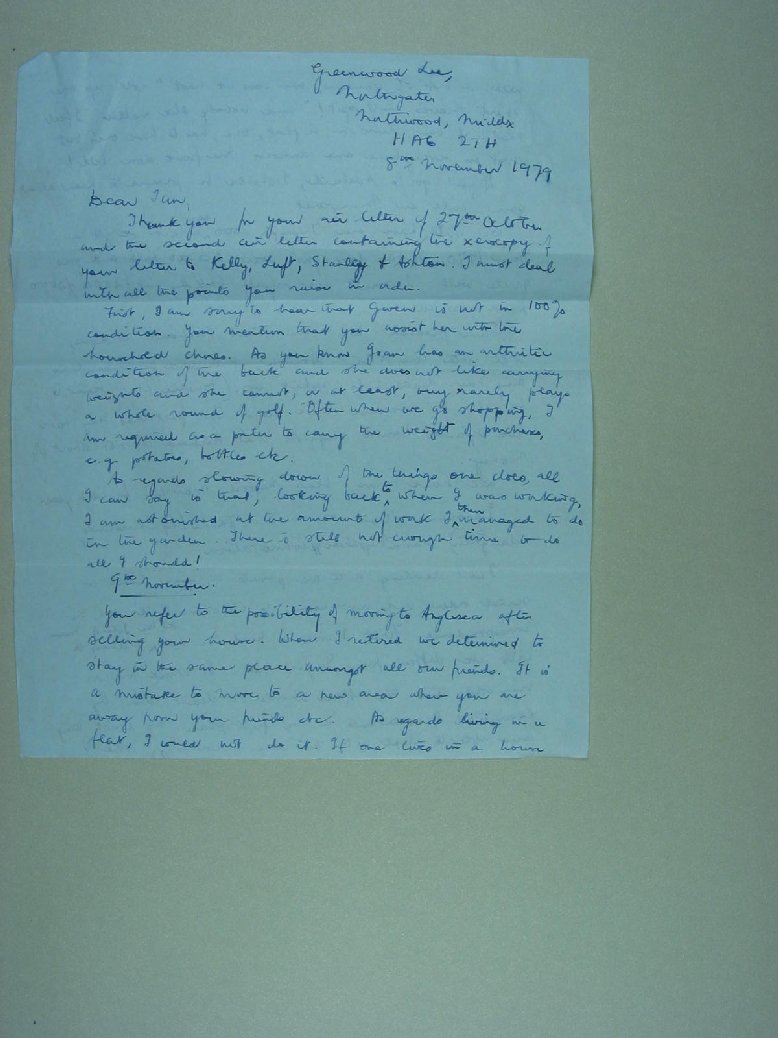 Greenwood Lee,
Northgate,
Northwood, Middx
HA6 2TH
8th November 1979
Dear Ian,
Thank you for your air letter of 27th October
and the second air letter containing the xerocopy of
your letter to Kelly, Luft, Stanley & Ashton. I must deal
with all the points you raise in order.
First, I am sorry to hear that Gwen is not in 100%
condition. You mention that you assist her with the
household chores. As you know Joan has an arthritic
condition of the back and she does not like carrying
weights and she cannot, or at least, very rarely plays
a whole round of golf. Often when we go shopping, I
am required as a porter to carry the weight of purchases,
e.g. potatoes, bottles etc.
As regards slowing down of the things one does, all
I can say is that, looking back to when I was working,
I am astonished at the amount of work I then managed to do
in the garden. There is still not enough time to do
all I should!
9th November.
You refer to the possibility of moving to Anglesea after
selling your house. When I retired we determined to
stay in the same place amongst all our friends. It is
a mistake to move to a new area when you are
away from your friends etc. As regards living in a
flat, I would not do it. If one lives in a house